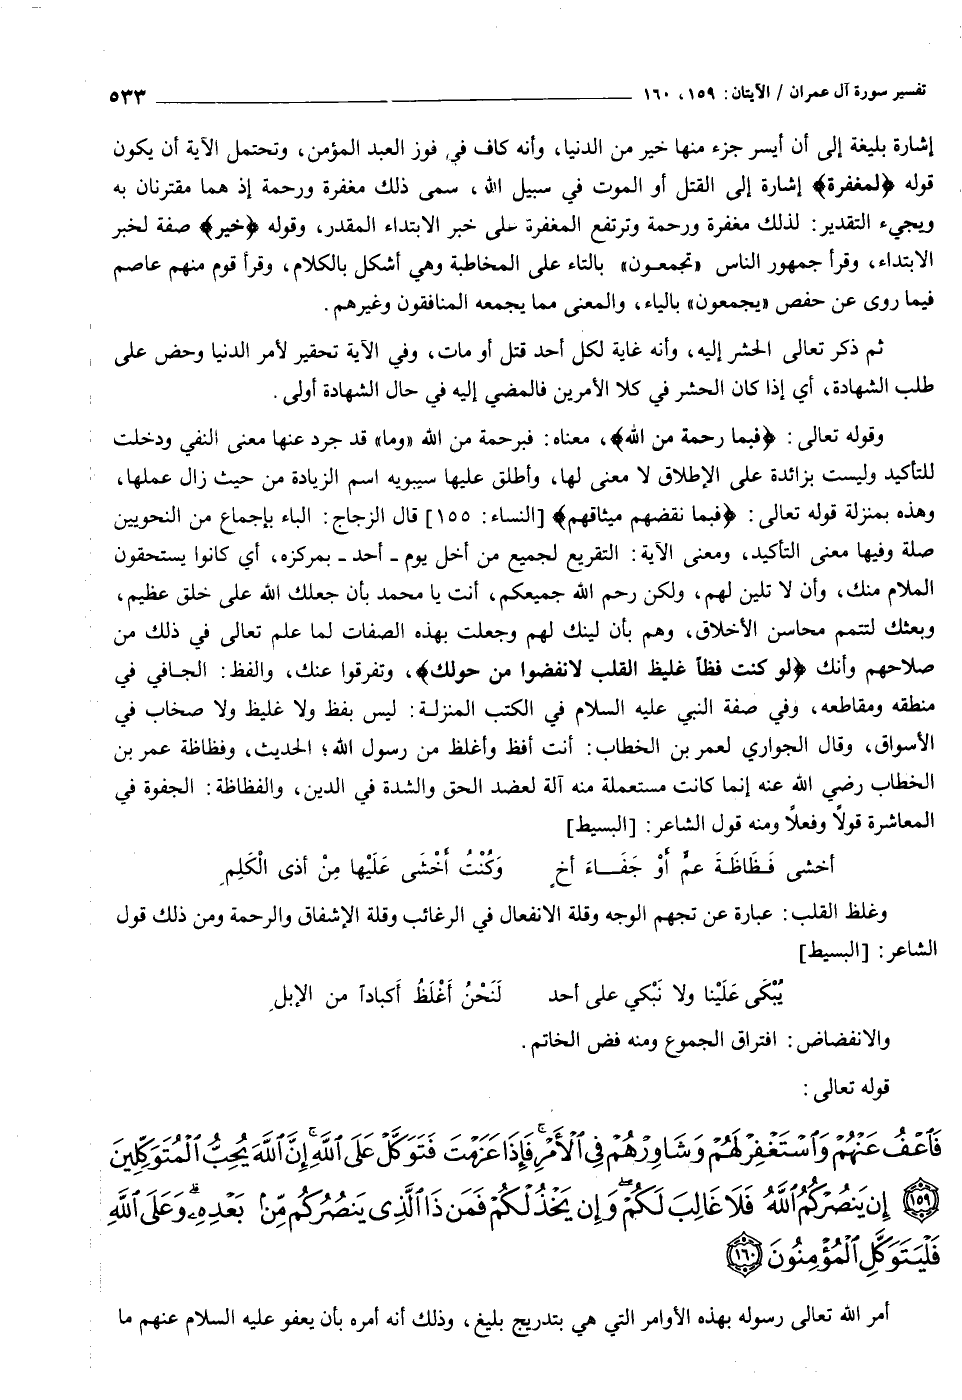 تفسير سورة آل عمران / الآيتان: ١٥٩، ١٦٠ ٥٣٣
إشارة بليغة إلى أن أيسر جزء منها خير من الدنيا، وأنه كاف في فوز العبد المؤمن، وتحتمل الآية أن يكون
قوله ﴿لمغفرة﴾ إشارة إلى القتل أو الموت في سبيل الله، سمى ذلك مغفرة ورحمة إذ هما مقترنان به
ويجيء التقدير: لذلك مغفرة ورحمة وترتفع المغفرة على خبر الابتداء المقدر، وقوله ﴿خير﴾ صفة لخبر
الابتداء، وقرأ جمهور الناس «تجمعون» بالتاء على المخاطبة وهي أشكل بالكلام، وقرأ قوم منهم عاصم
فيما روى عن حفص «يجمعون» بالياء، والمعنى مما يجمعه المنافقون وغيرهم.
ثم ذكر تعالى الحشر إليه، وأنه غاية لكل أحد قتل أو مات، وفي الآية تحقير لأمر الدنيا وحض على
طلب الشهادة، أي إذا كان الحشر في كلا الأمرين فالمضي إليه في حال الشهادة أولى.
وقوله تعالى: ﴿فبما رحمة من الله﴾، معناه: فبرحمة من الله «وما» قد جرد عنها معنى النفي ودخلت
للتأكيد وليست بزائدة على الإطلاق لا معنى لها، وأطلق عليها سيبويه اسم الزيادة من حيث زال عملها،
وهذه بمنزلة قوله تعالى: ﴿فبما نقضهم ميثاقهم﴾ [النساء: ١٥٥] قال الزجاج: الباء بإجماع من النحويين
صلة وفيها معنى التأكيد، ومعنى الآية: التقريع لجميع من أخل يوم - أحد - بمركزه، أي كانوا يستحقون
الملام منك، وأن لا تلين لهم، ولكن رحم الله جميعكم، أنت يا محمد بأن جعلك الله على خلق عظيم،
وبعثك لتتمم محاسن الأخلاق، وهم بأن لينك لهم وجعلت بهذه الصفات لما علم تعالى في ذلك من
صلاحهم وأنك ﴿لو كنت فظاً غليظ القلب لانفضوا من حولك﴾، وتفرقوا عنك، والفظ: الجافي في
منطقه ومقاطعه، وفي صفة النبي عليه السلام في الكتب المنزلة: ليس بفظ ولا غليظ ولا صخاب في
الأسواق، وقال الجواري لعمر بن الخطاب: أنت أفظ وأغلظ من رسول الله؛ الحديث، وفظاظة عمر بن
الخطاب رضي الله عنه إنما كانت مستعملة منه آلة لعضد الحق والشدة في الدين، والفظاظة: الجفوة في
المعاشرة قولاً وفعلاً ومنه قول الشاعر: [البسيط]
أخشى فَظَاظَةَ عمٍّ أَوْ جَفَاءَ أخٍ وَكُنْتُ أَخْشَى عَلَيْها مِنْ أذى الْكَلِمِ
وغلظ القلب: عبارة عن تجهم الوجه وقلة الانفعال في الرغائب وقلة الإشفاق والرحمة ومن ذلك قول
الشاعر: [البسيط]
يُبْكَى عَلَيْنا ولا نَبْكي على أحد لَنَحْنُ أَغْلَظُ أكباداً من الإبلِ
والانفضاض: افتراق الجموع ومنه فض الخاتم.
قوله تعالى:
فَٱعْفُ عَنْهُمْ وَٱسْتَغْفِرْ لَهُمْ وَشَاوِرْهُمْ فِى ٱلْأَمْرِ ۖ فَإِذَا عَزَمْتَ فَتَوَكَّلْ عَلَى ٱللَّهِ ۚ إِنَّ ٱللَّهَ يُحِبُّ ٱلْمُتَوَكِّلِينَ
١٥٩ إِن يَنصُرْكُمُ ٱللَّهُ فَلَا غَالِبَ لَكُمْ ۖ وَإِن يَخْذُلْكُمْ فَمَن ذَا ٱلَّذِى يَنصُرُكُم مِّنۢ بَعْدِهِۦ ۗ وَعَلَى ٱللَّهِ
فَلْيَتَوَكَّلِ ٱلْمُؤْمِنُونَ ١٦٠
أمر الله تعالى رسوله بهذه الأوامر التي هي بتدريج بليغ، وذلك أنه أمره بأن يعفو عليه السلام عنهم ما